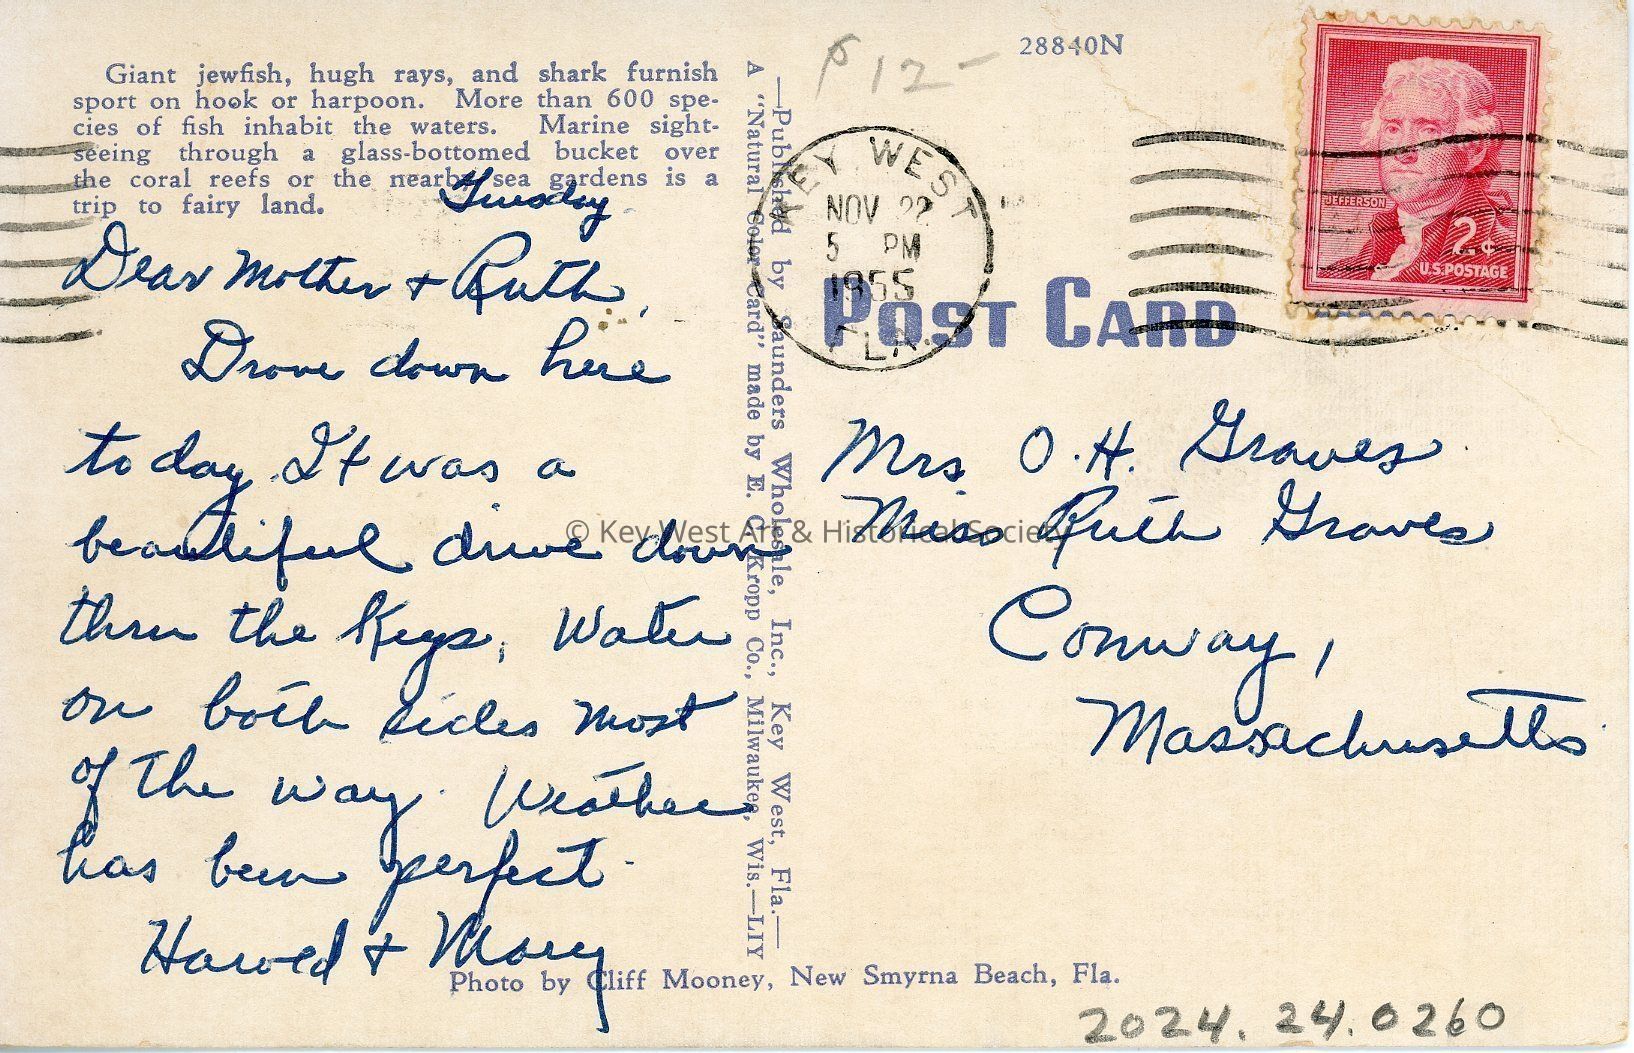 Giant jewfish, hugh rays, and shark furnish
sport on hook or harpoon. More than 600 spe-
cies of fish inhabit the waters. Marine sight-
seeing through a glass-bottomed bucket over
the coral reefs or the nearby sea gardens is a
trip to fairy land.
Tuesday
Dear Mother + Ruth,
Drove down here
today. It was a
beautiful drive down
thru the Keys, Water
on both sides most
of the way. Weather
has been perfect.
Harold + Mary
—Published by Saunders Wholesale, Inc., Key West, Fla.—
A "Natural Color Card" made by E. C. Kropp Co., Milwaukee, Wis.—LIY
Photo by Cliff Mooney, New Smyrna Beach, Fla.
12-
28840N
KEY WEST
NOV 22
5 PM
1955
FLA.
JEFFERSON
2¢
U.S. POSTAGE
POST CARD
Mrs. O. H. Graves
Miss Ruth Graves
Conway,
Massachusetts
© Key West Art & Historical Society
2024.24.0260